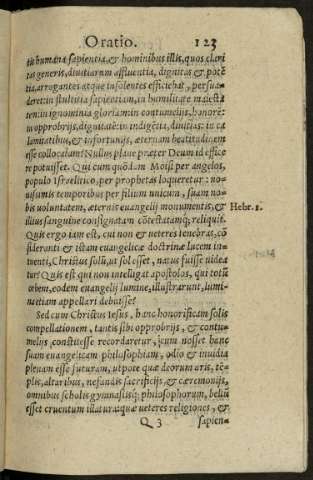 Oratio. 123
tis humana sapientia, & hominibus illis, quos clari
tas generis, diuitiarum affluentia, dignitas & potē
tia, arrogantes atque insolentes efficiebat, persua=
deret: in stultitia sapientiam, in humilitate maiesta
tem: in ignominia gloriam: in contumelijs, honorē:
in opprobrijs, dignitatē: in indigētia, diuitias: in ca
lamitatibus, & infortunijs, æternam beatitudinem
esse collocatam? Nullus plane præter Deum id efficere
potuisset. Qui cum quōdam Moisi per angelos,
populo Israëlitico, per prophetas loqueretur: no=
uissimis temporibus per filium vnicum, suam no=
bis voluntatem, æternis euangelij monumentis, & Hebr. 1.
illius sanguine consignatam cōtestatamq́, reliquit.
Quis ergo iam est, cui non & veteres tenebras, cō
sideranti & istam euangelicæ doctrinæ lucem in=
tuenti, Christus solū, ut sol esset, natus fuisse videa
tur? Quis est qui non intelligat apostolos, qui totū
orbem, eodem euangelij lumine, illustrarunt, lumi=
na etiam appellari debuisse?
Sed cum Christus Iesus, hanc honorificam solis
compellationem, tantis sibi opprobrijs, & contu=
melijs constitisse recordaretur, cum nosset hanc
suam euangelicam philosophiam, odio & inuidia
plenam esse futuram, utpote quæ deorum aris, tē=
plis, altaribus, nefandis sacrificijs, & cæremonijs,
omnibus scholis gymnasiisq́; philosophorum, bellū
esset cruentum illatura: quæ veteres religiones, &
Q 3 sapien=